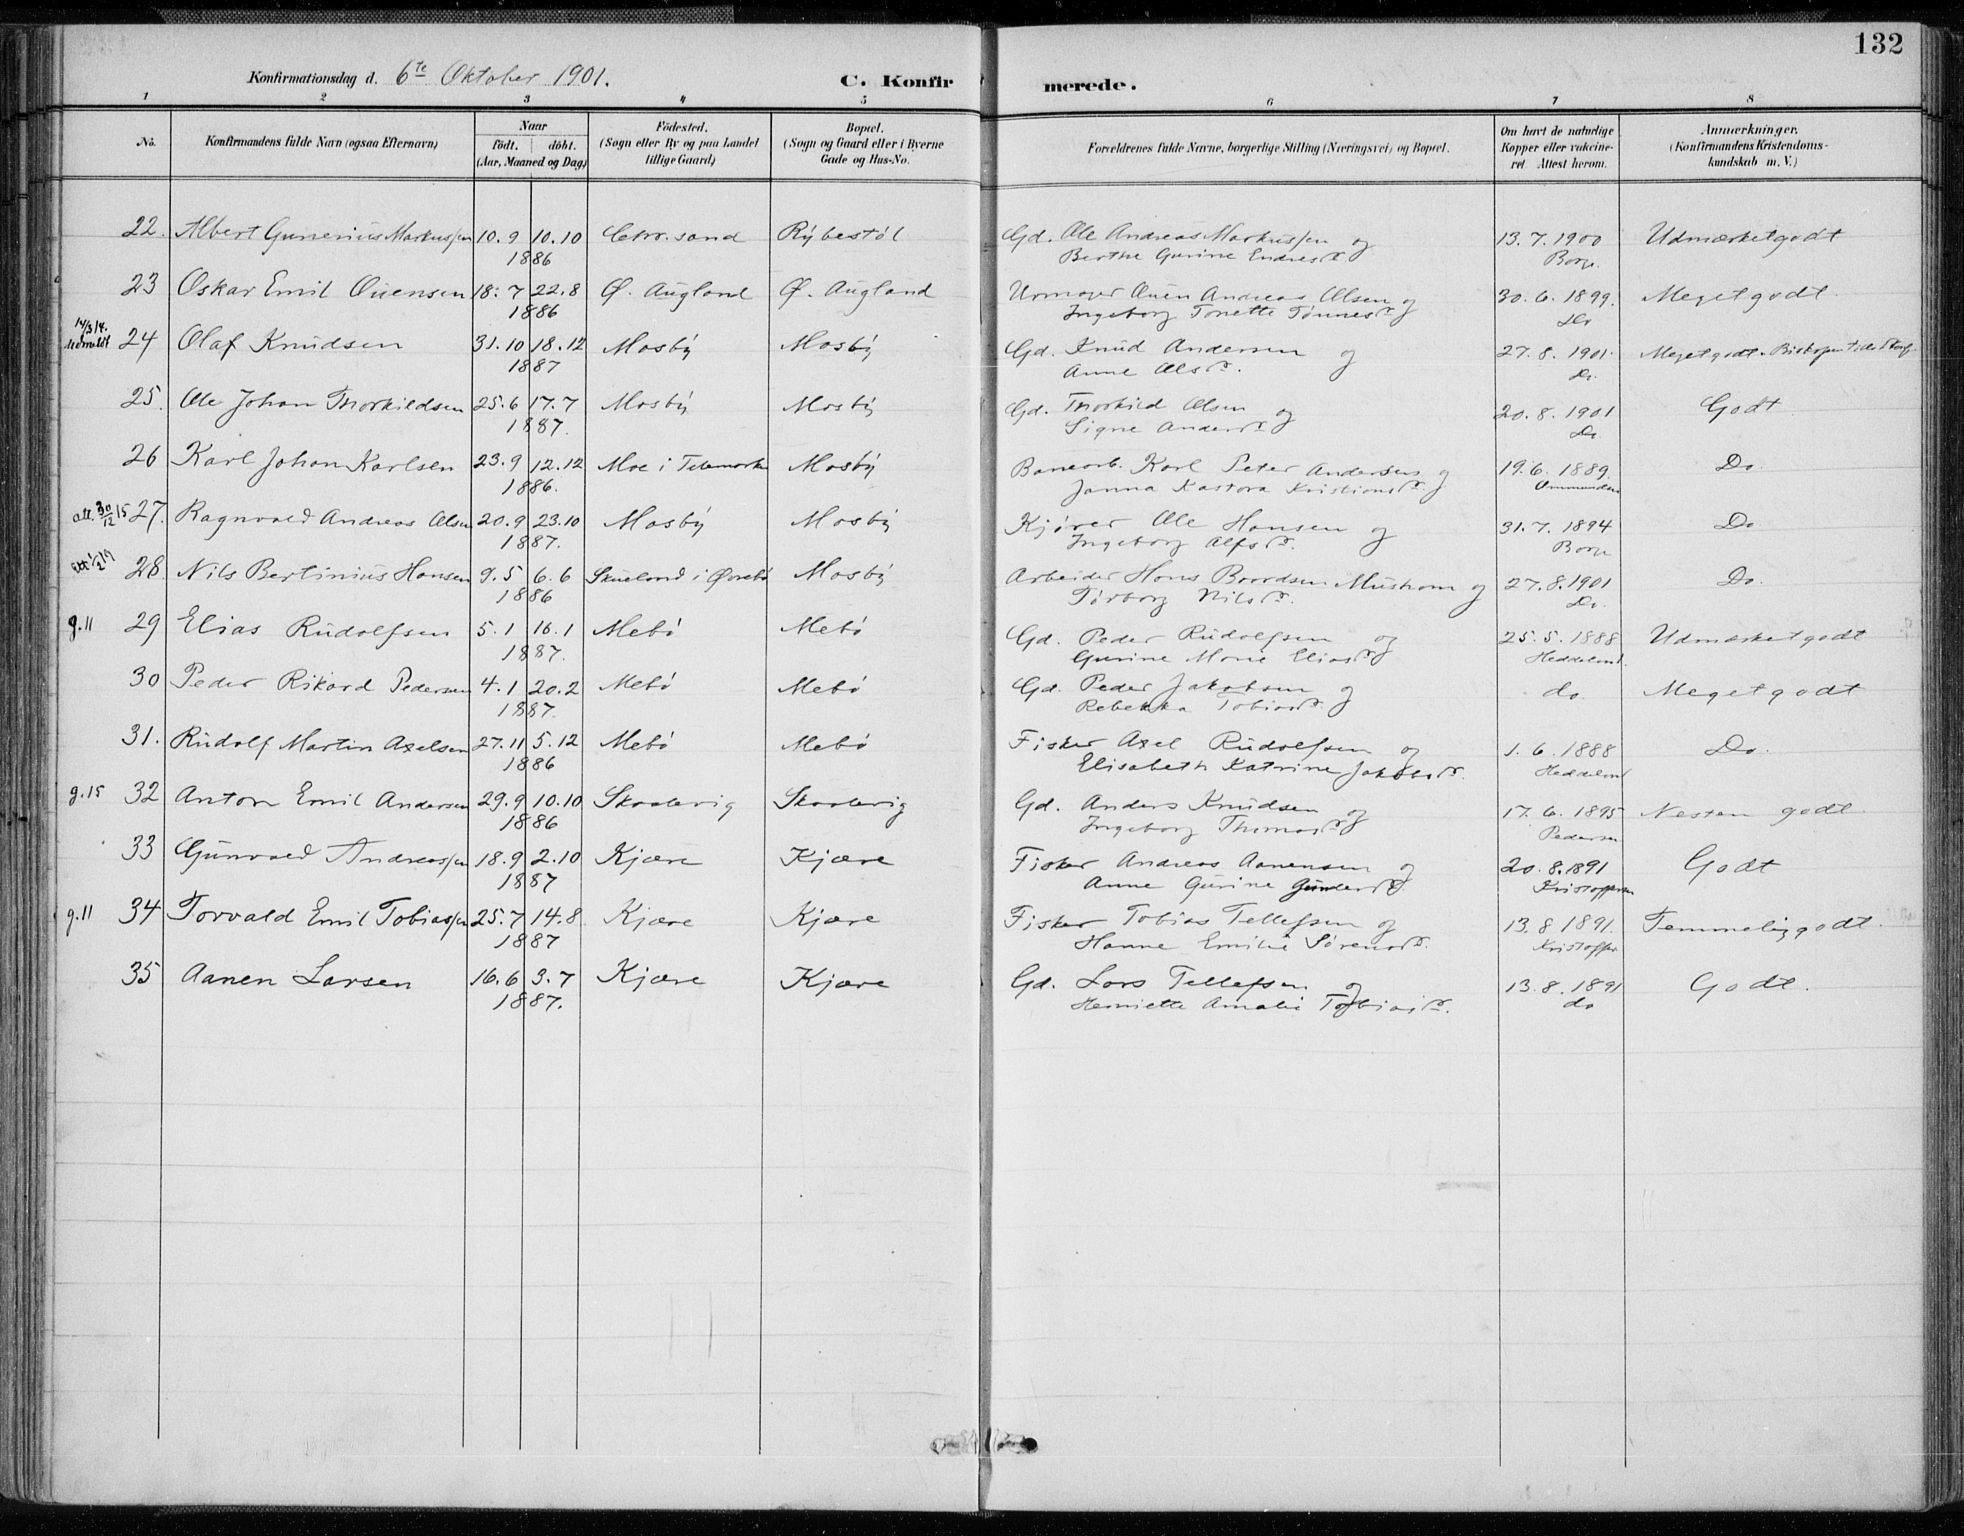 132
Konfirmationsdag d. 6te Oktober 1901.
C. Konfirmerede.
1 2 3 4 5 6 7 8
No. Konfirmandens fulde Navn (ogsaa Efternavn) Naar födt. döbt. (Aar, Maaned og Dag) Födested. (Sogn eller By og paa Landet tillige Gaard) Bopæl. (Sogn og Gaard eller i Byerne Gade og Hus-No. Forældrenes fulde Navne, borgerlige Stilling (Næringsvei) og Bopæl. Om havt de naturlige Kopper eller vakcineret. Attest herom. Anmærkninger. (Konfirmandens Kristendomskundskab m. V.)
22. Albert Gunerius Markussen 10.9 10.10 Chr.sand Rÿbestöl Gd. Ole Andreas Markussen og 13.7.1900 Udmærketgodt
1886 Berthe Gurine Endresdr. Borge.
23 Oskar Emil Ouensen 18.7 22.8 Ø. Augland Ø. Augland Urmager Ouen Andreas Olsen og 30.6.1899. Megetgodt.
1886 Ingeborg Tonette Tönnesdr. Do
24 Olaf Knudsen 31.10 18.12 Mosbÿ Mosbÿ Gd. Knud Andersen og 27.8.1901. Megetgodt.
1887 Anne Olsdr. Do.
25. Ole Johan Thorkildsen 25.6 17.7 Mosbÿ Mosbÿ Gd. Thorkild Olsen og 20.8.1901 Godt
1887. Signe Andersdr. Do
26 Karl Johan Karlsen 23.9 12.12 Moe i Telemarken Mosbÿ Banearb. Karl Peter Andersen og 19.6.1889. Do.
1886. Janna Kastora Kristiansdr.
att. 30/12 15 27. Ragnvald Andreas Olsen 20.9 23.10 Mosbÿ Mosbÿ Kjører Ole Hansen og 31.7.1894 Do
1887. Ingeborg Alfsdr. Borge
28 Nils Bertinius Hansen 9.5 6.6 Skueland i Øvrebö Mosbÿ Arbeider Hans Baardsen Mushom og 27.8.1901 Do.
1886 Törborg Nilsdr. Do.
g.11 29 Elias Rudolfsen 5.1 16.1 Mebö Mebö Gd. Peder Rudolfsen og 25.5.1888 Udmærketgodt
1887. Gurine Marie Eliasdr. Heddeland.
30 Peder Rikard Pedersen 4.1 20.2 Mebö Mebö Gd. Peder Jakobsen og do. Megetgodt
1887. Rebekka Tobiasdr.
31. Rudolf Martin Axelsen 27.11 5.12 Mebö Mebö Fisker Axel Rudolfsen og 1.6.1888 Do.
1886 Elisabeth Katrine Jakobsdr. Heddeland
g.15 32 Anton Emil Andersen 29.9 10.10 Skaalevig Skaalevig Gd. Anders Knudsen og 17.6.1895 Nesten godt.
1886 Ingeborg Thomasdr. Pedersen
33 Gunvald Andreassen 18.9 2.10 Kjære Kjære Fisker Andreas Aanensen og 20.8.1891 Godt
1887 Anne Gurine Gundersdr. Kristoffersen
g.11 34 Torvald Emil Tobiassen 25.7 14.8 Kjære Kjære Fisker Tobias Tellefsen og 13.8.1891. Temmeliggodt.
1887 Hanne Emilie Sörensdr. Kristoffer
35 Aanen Larsen 16.6 3.7 Kjære Kjære Gd. Lars Tellefsen og 13.8.1891 Godt.
1887. Henriette Amalie Tobiasdr. do